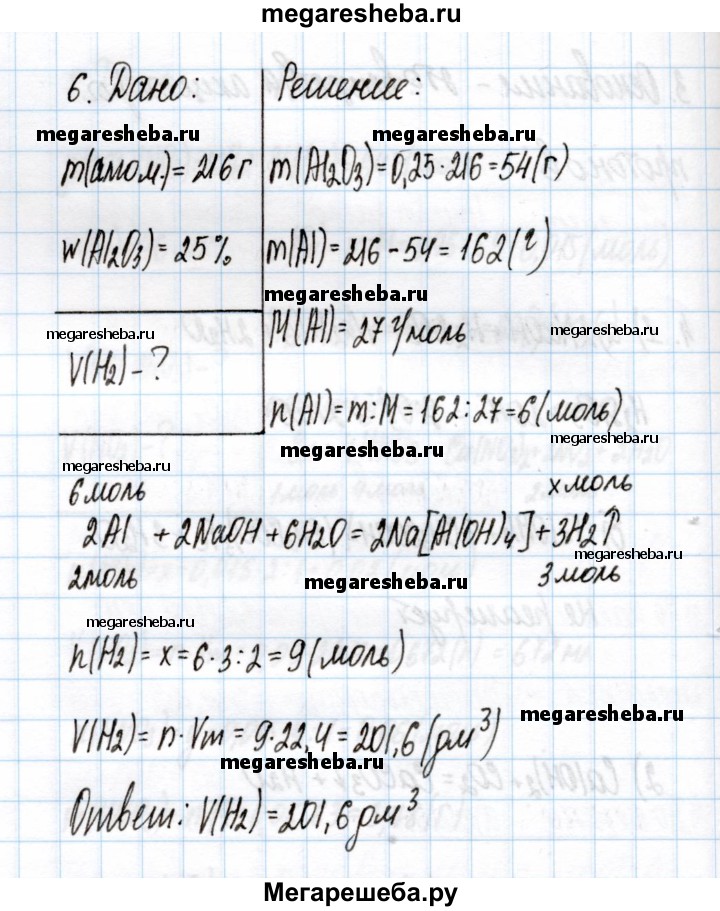 megaresheba.ru
6. Дано: Решение:
megaresheba.ru megaresheba.ru
m(алюм.) = 216 г m(Al₂O₃) = 0,25·216 = 54(г)
w(Al₂O₃) = 25% m(Al) = 216 - 54 = 162(г)
megaresheba.ru
megaresheba.ru M(Al) = 27 г/моль megaresheba.ru
V(H₂) - ?
n(Al) = m:M = 162:27 = 6(моль)
megaresheba.ru
megaresheba.ru megaresheba.ru
6 моль x моль
2Al + 2NaOH + 6H₂O = 2Na[Al(OH)₄] + 3H₂↑
2 моль megaresheba.ru 3 моль
megaresheba.ru
n(H₂) = x = 6·3:2 = 9(моль)
V(H₂) = n·Vm = 9·22,4 = 201,6(дм³) megaresheba.ru
megaresheba.ru
Ответ: V(H₂) = 201,6 дм³
Мегарешеба.ру